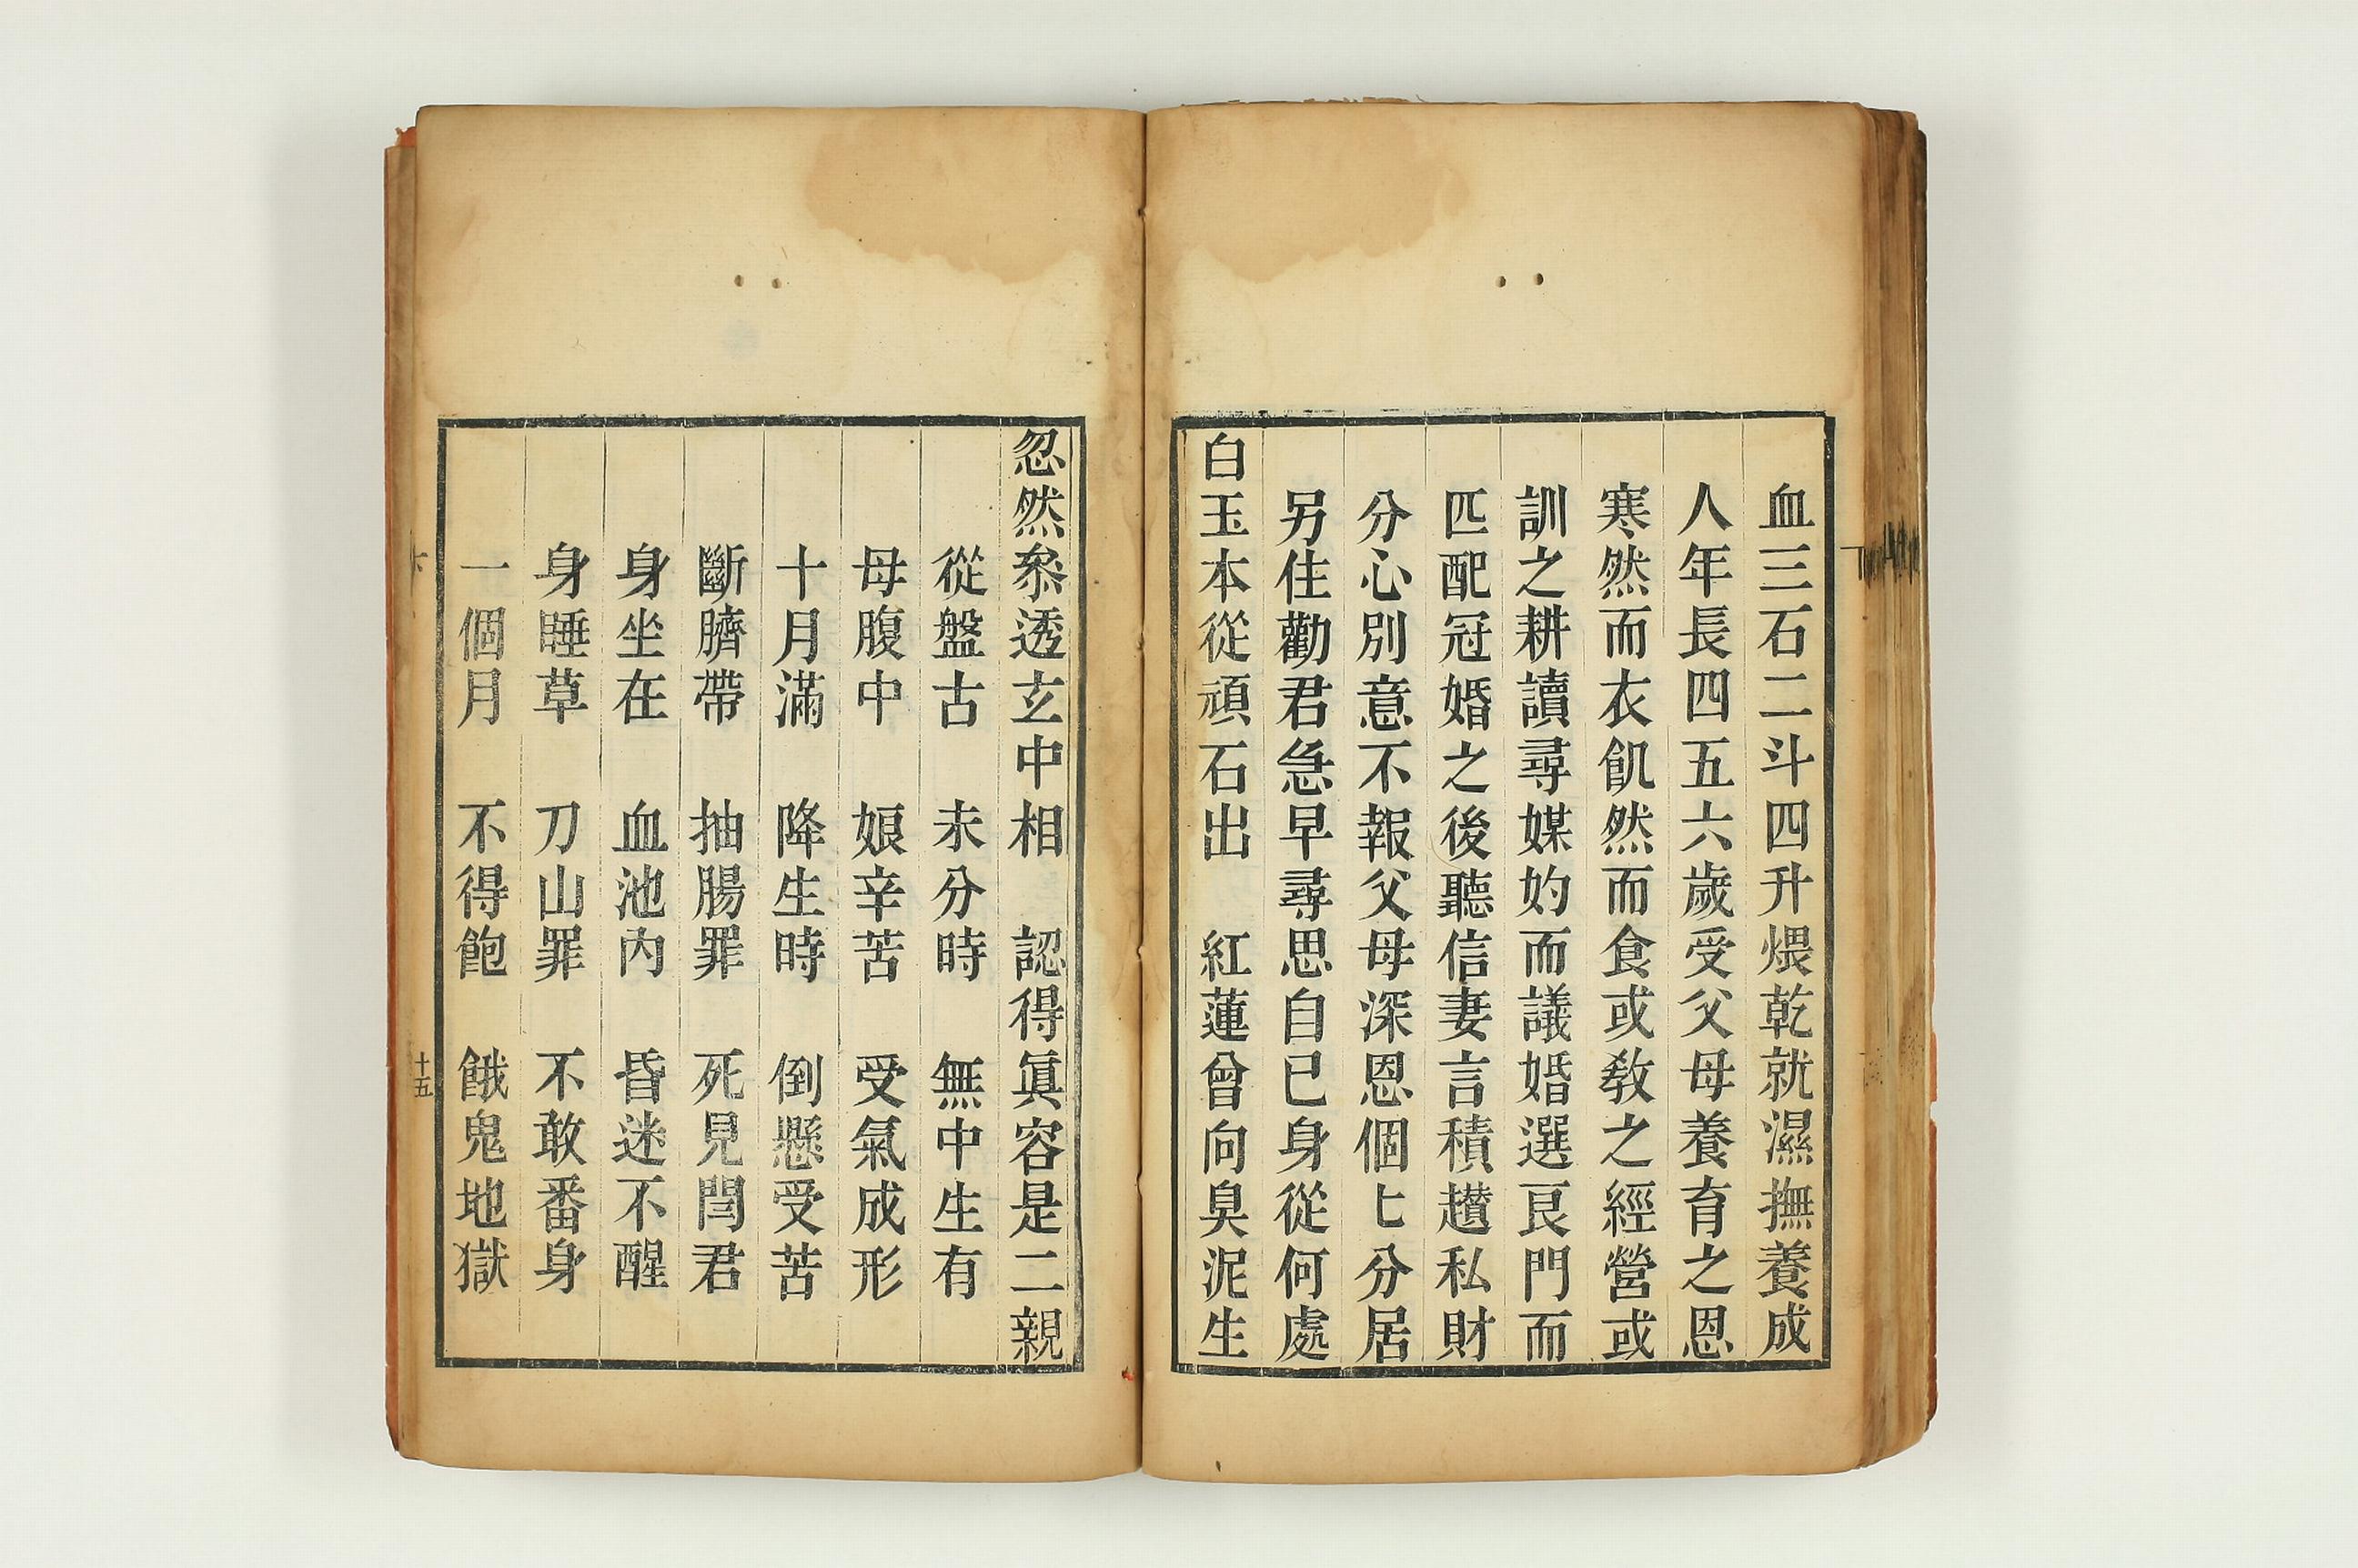 血三石二斗四升煨乾就濕撫養成
人年長四五六歲受父母養育之恩
寒然而衣飢然而食或教之經營或
訓之耕讀尋媒妁而議婚選良門而
匹配冠婚之後聽信妻言積趲私財
分心別意不報父母深恩個匕分居
另住勸君急早尋思自己身從何處
白玉本從頑石出　紅蓮曾向臭泥生
忽然叅透玄中相　認得眞容是二親
從盤古　未分時　無中生有
母腹中　娘辛苦　受氣成形
十月滿　降生時　倒懸受苦
斷臍帶　抽腸罪　死見閆君
身坐在　血池內　昏迷不醒
身睡草　刀山罪　不敢番身
一個月　不得飽　餓鬼地獄
十五